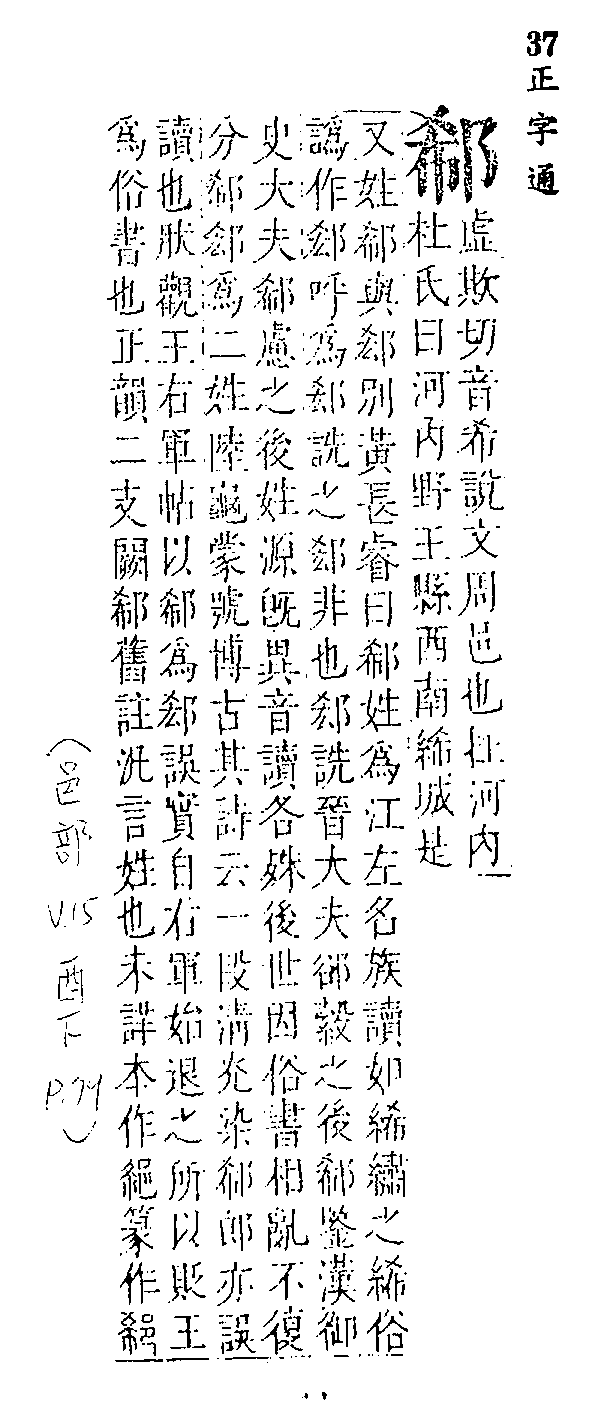 37正字通
郗
虛欺切音希說文周邑也在河內
杜氏曰河內野王縣西南絺城是
又姓郗與郄別黃長睿曰郗姓爲江左名族讀如絺繡之絺俗
譌作郄呼爲郄詵之郄非也郄詵晉大夫郤縠之後郗鑒漢御
史大夫郗慮之後姓源旣異音讀各殊後世因俗書相亂不復
分郗郄爲二姓陸龜蒙號博古其詩云一段清光染郗郎亦誤
讀也狀觀王右軍帖以郗爲郄誤實自右軍始退之所以貶王
爲俗書也正韻二支闕郗舊註汎言姓也未詳本作𨜓篆作
（邑部 V.15 酉下 P.79）